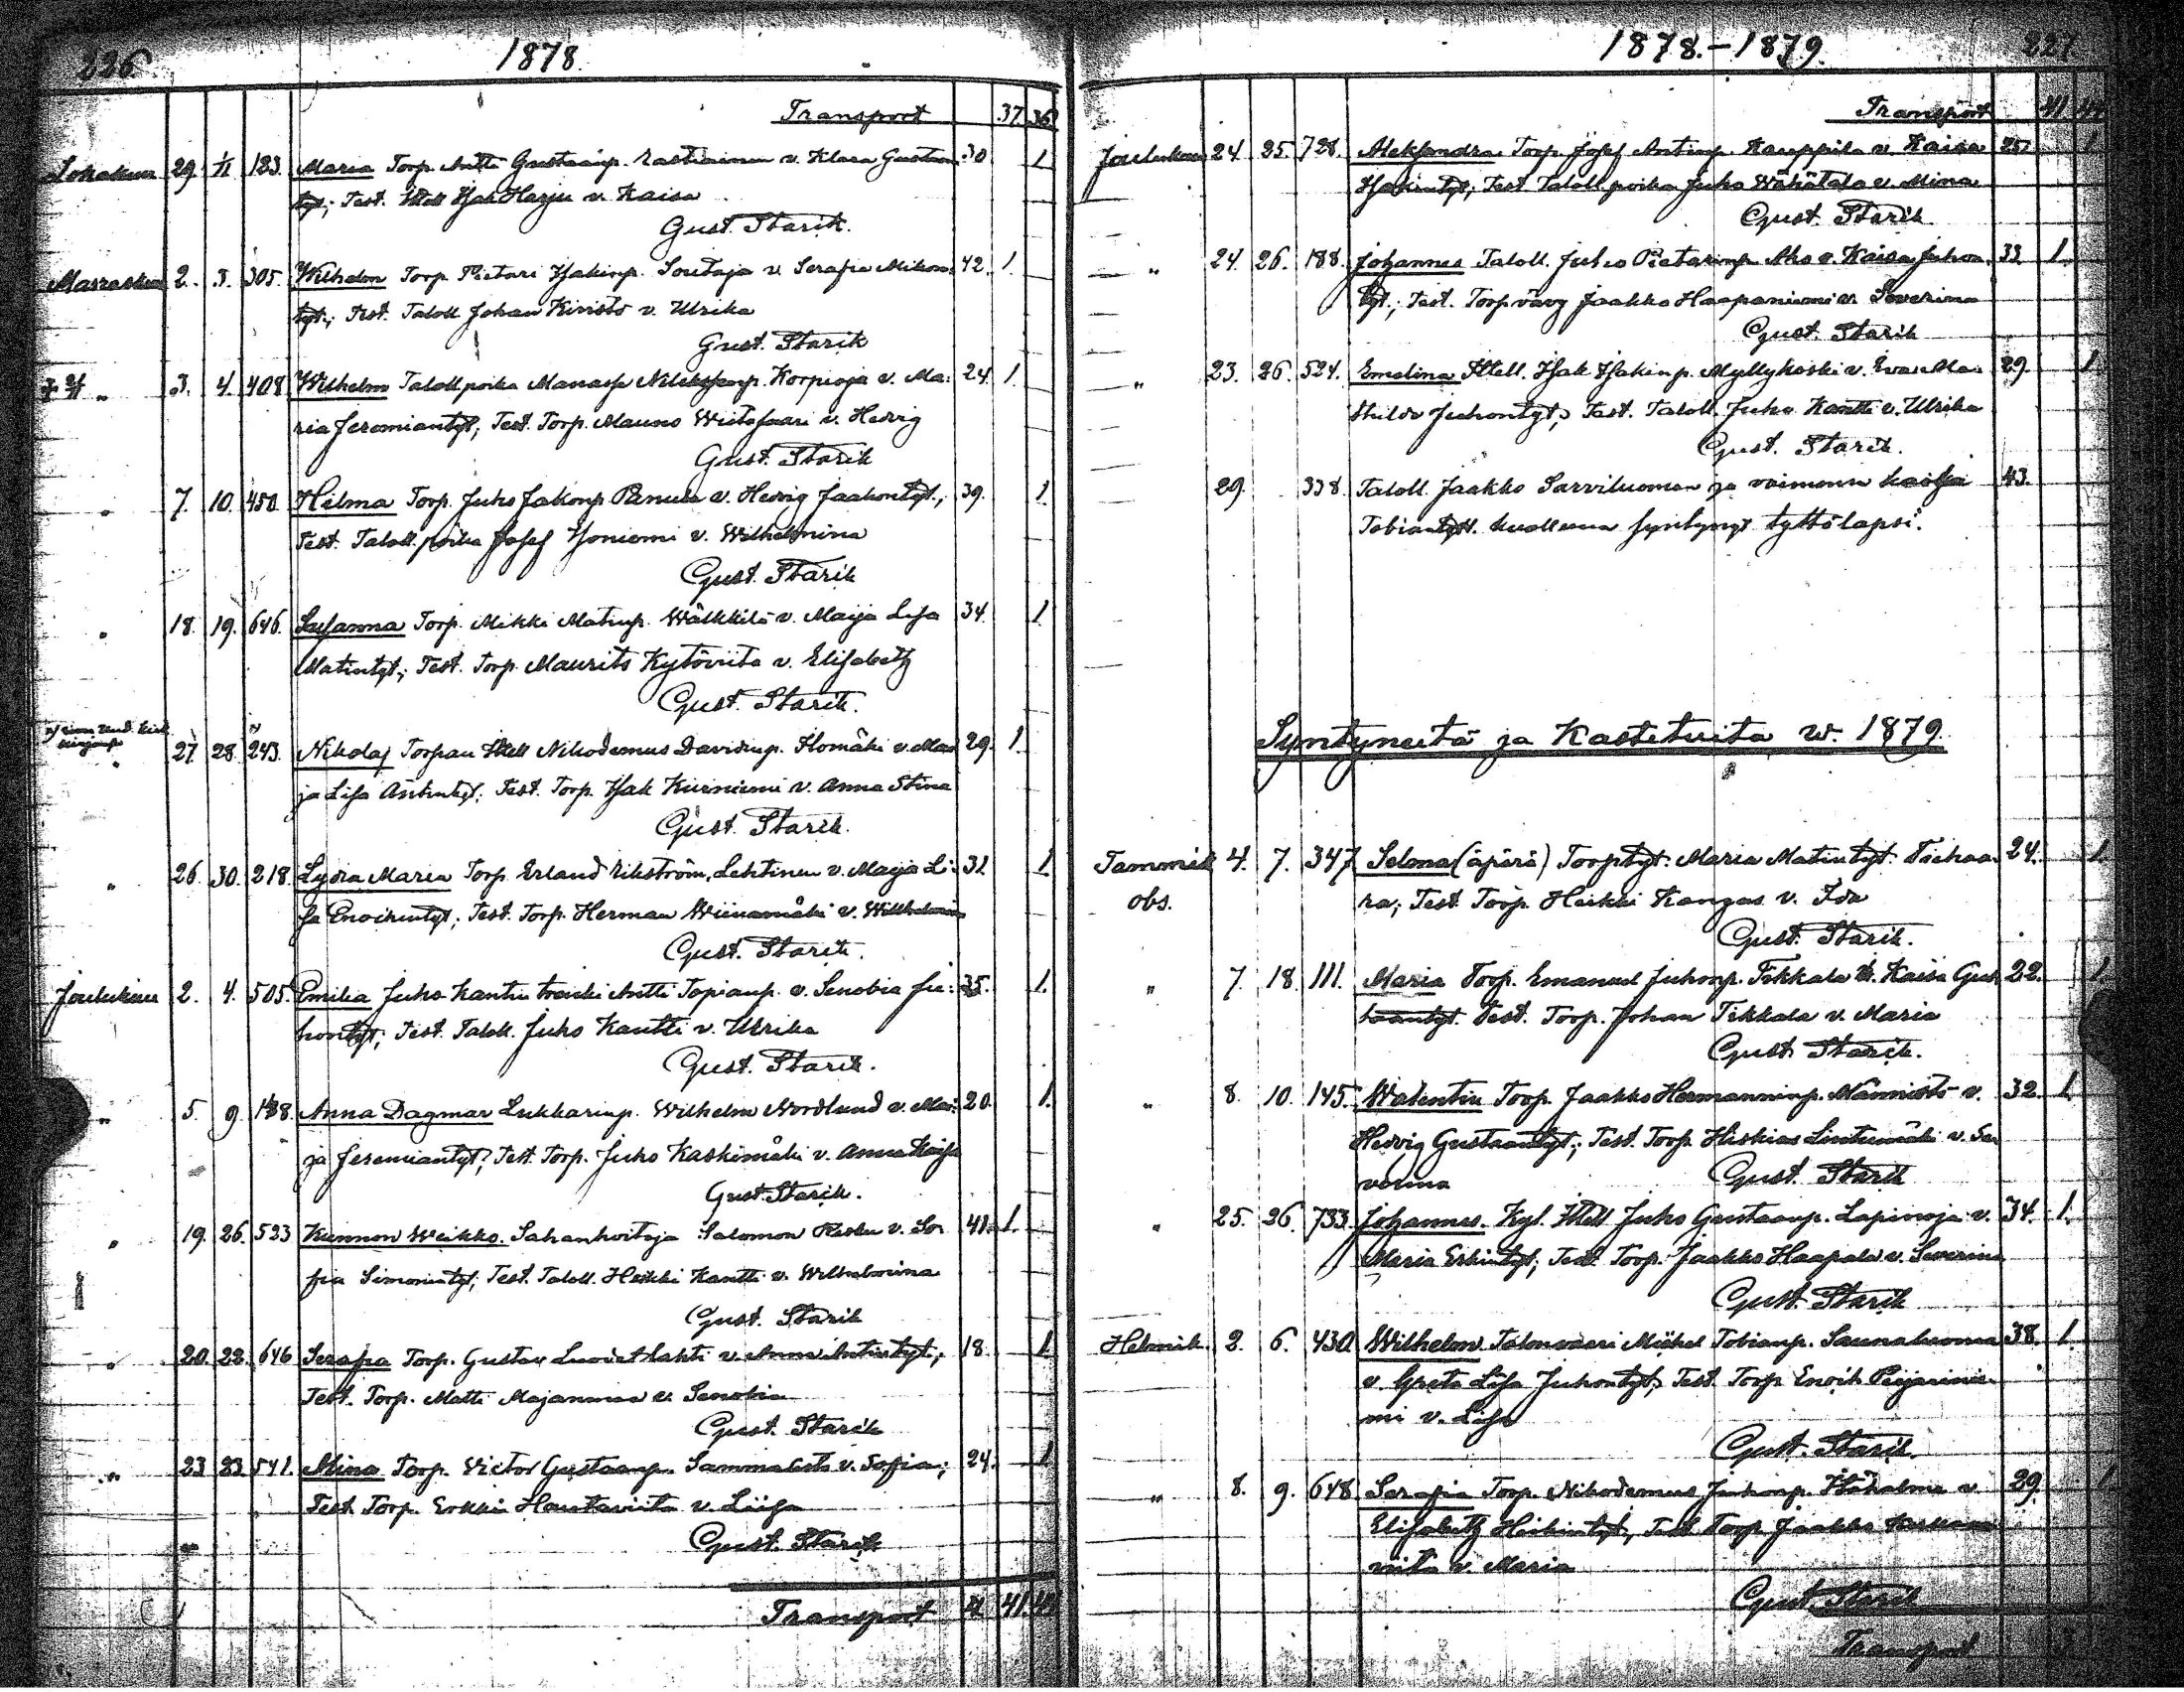 226. 1878.
Transport 37. 36
Lokakuu 29 1/11 183. Maria Torp. Antti Gustaanp. Rastiainen v. Klara Gustaan 30 1
tyt; Test. Itell Isak Harju v. Kaisa
Gust. Starik.
Marraskuu 2. 3. 305. Wilhelm Torp. Pietari Isakinp. Soutaja v. Serafia Mikon- 42. 1.
tyt; Test. Taloll Johan Kivistö v. Ulrika
Gust. Starik
" 3. 4. 408 Wilhelm Taloll poika Manasse Korpioja v. Ma- 24. 1.
ria Jeremiantyt; Test. Torp. Mauno Wiitasaari v. Hedvig
Gust. Starik
" 7. 10. 450 Hilma Torp. Juho Jakonp. Panula v. Hedvig Jaakontyt, 39. 1.
Test. Taloll. poika Josef Isoniemi v. Wilhelmina
Gust. Starik
" 18. 19. 646. Susanna Torp. Mikki Matinp. Wälkkilä v. Maija Lisa 34. 1
Matintyt; Test. Torp. Maurits Kytöviita v. Elisabeth
Gust. Starik.
" 27. 28. 243. Nikolaj Torpan Itell Nikodemus Davidinp. Ilomäki v. Mar 29. 1.
ja Lisa Antintyt; Test. Torp. Isak Kiviniemi v. Anna Stina
Gust. Starik.
" 26. 30. 218. Lydia Maria Torp. Erland Erikström, Lehtinen v. Maija Li- 31 1
sa Enokintyt; Test. Torp. Herman Wiinamäki v. Wilhelmin
Gust. Starik.
Joulukuu 2. 4. 505. Emilia Juho Kantin trenki Antti Topianp. v. Senobia Ju- 35. 1.
hontyt; Test. Taloll. Juho Kantti v. Ulrika
Gust. Starik.
" 5. 9. 188. Anna Dagmar Lukkarinp. Wilhelm Nordlund v. Mar- 20. 1.
ja Jeremiantyt; Test. Torp. Juho Kaskimäki v. Anna Kaisa
Gust. Starik.
" 19. 26. 523 Kunnon Weikko. Sahanhoitaja Salomon Kesku v. So- 41. 1.
fia Simonintyt; Test. Taloll. Heikki Kantti v. Wilhelmina
Gust. Starik
" 20. 28. 646 Serafia Torp. Gustav Luodetlahti v. Anna Antintyt; 18. 1
Test. Torp. Matti Majanmaa v. Senobia
Gust. Starik
" 23 23. 541. Mina Torp. Victor Gustaanp. Sammalisto v. Sofia; 24. 1
Test. Torp. Erkki Hautaviita v. Liisa
Gust. Starik
Transport 41.
1878.–1879. 227.
Transport 41
Joulukuu 24. 25. 728. Aleksandra Torp. Josef Antinp. Kauppila v. Kaisa 25. 1
Isakintyt; Test. Taloll poika Juho Wähätalo v. Mina
Gust. Starik.
" 24. 26. 188. Johannes Taloll. Juho Pietarinp. Aho v. Kaisa Juhon 33. 1.
tyt.; Test. Torp. vävy Jaakko Haapaniemi v. Severina
Gust. Starik
" 23. 26. 524. Emelina Itell. Isak Isakinp. Myllykoski v. Eva Ma- 29. 1
thilda Juhontyt; Test. Taloll. Juho Kantti v. Ulrika
Gust. Starik.
29. 338. Taloll. Jaakko Sarviluoman ja vaimonsa Kaisa 43.
Tobiantyt. kuolleena syntynyt tyttölapsi.
Syntyneitä ja Kastetuita w. 1879
Tammik 4. 7. 347 Selma (äpärä) Torptyt. Maria Matintyt 24. 1.
obs. ra; Test. Torp. Heikki Kangas v. Ida
Gust. Starik.
" 7. 18. 111. Maria Torp. Emanuel Juhonp. Tikkala v. Kaisa Gus 22. 1
taantyt. Test. Torp. Johan Tikkala v. Maria
Gust. Starik.
" 8. 10. 145. Walentin Torp. Jaakko Hermanninp. Männistö v. 32. 1.
Hedvig Gustaantyt; Test. Torp. Hiskias Lintumäki v. Se
verina
Gust. Starik
" 25. 26. 733. Johannes. Kyl. Itell Juho Gustaanp. Lapinoja v. 34. 1.
Maria Erkintyt; Test. Torp. Jaakko Haapala v. Severina
Gust. Starik
Helmik. 2. 6. 430. Wilhelm Talonvaari Mikkel Tobianp. Saunaluoma 38. 1
v. Greta Lisa Juhontyt; Test. Torp. Enok
mi v. Lisa
Gust. Starik.
" 8. 9. 648 Serafia Torp. Nikodemus Juhonp. v. 29. 1
Elisabeth Heikintyt; Test. Torp. Jaakko
viita v. Maria
Gust. Starik
Transport